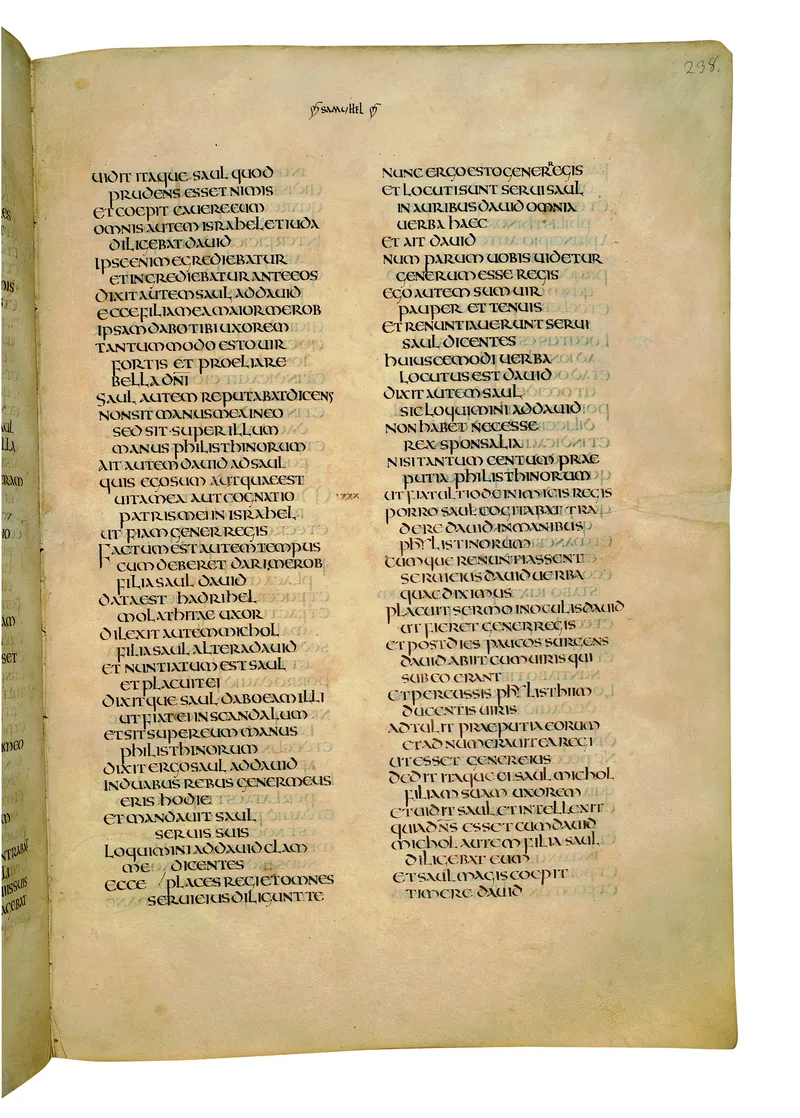 238.
SAMUHEL
UIDIT ITAQUE SAUL QUOD
PRUDENS ESSET NIMIS
ET COEPIT CAUERE EUM
OMNIS AUTEM ISRAHEL ET IUDA
DILIGEBAT DAUID
IPSE ENIM EGREDIEBATUR
ET INGREDIEBATUR ANTE EOS
DIXIT AUTEM SAUL AD DAUID
ECCE FILIA MEA MAIOR MEROB
IPSAM DABO TIBI UXOREM
TANTUMMODO ESTO UIR
FORTIS ET PROELIARE
BELLA DNI
SAUL AUTEM REPUTABAT DICENS
NON SIT MANUS MEA IN EO
SED SIT SUPER ILLUM
MANUS PHILISTHINORUM
AIT AUTEM DAUID AD SAUL
QUIS EGO SUM AUT QUAE EST
UITA MEA AUT COGNATIO
PATRIS MEI IN ISRAHEL
UT FIAM GENER REGIS
FACTUM EST AUTEM TEMPUS
CUM DEBERET DARI MEROB
FILIA SAUL DAUID
DATA EST HADRIHEL
MOLATHITAE UXOR
DILEXIT AUTEM MICHOL
FILIA SAUL ALTERA DAUID
ET NUNTIATUM EST SAUL
ET PLACUIT EI
DIXITQUE SAUL DABO EAM ILLI
UT FIAT EI IN SCANDALUM
ET SIT SUPER EUM MANUS
PHILISTHINORUM
DIXIT ERGO SAUL AD DAUID
IN DUABUS REBUS GENER MEUS
ERIS HODIE
ET MANDAUIT SAUL
SERUIS SUIS
LOQUIMINI AD DAUID CLAM
ME DICENTES
ECCE PLACES REGI ET OMNES
SERUI EIUS DILIGUNT TE
NUNC ERGO ESTO GENER REGIS
ET LOCUTI SUNT SERUI SAUL
IN AURIBUS DAUID OMNIA
UERBA HAEC
ET AIT DAUID
NUM PARUM UOBIS UIDETUR
GENERUM ESSE REGIS
EGO AUTEM SUM UIR
PAUPER ET TENUIS
ET RENUNTIAUERUNT SERUI
SAUL DICENTES
HUIUSCEMODI UERBA
LOCUTUS EST DAUID
DIXIT AUTEM SAUL
SIC LOQUIMINI AD DAUID
NON HABET NECESSE
REX SPONSALIA
NISI TANTUM CENTUM PRAE
PUTIA PHILISTHINORUM
UT FIAT ULTIO DE INIMICIS REGIS
PORRO SAUL COGITABAT TRA
DERE DAUID IN MANIBUS
PHILISTINORUM
CUMQUE RENUNTIASSENT
SERUI EIUS DAUID UERBA
QUAE DIXIMUS
PLACUIT SERMO IN OCULIS DAUID
UT FIERET GENER REGIS
ET POST DIES PAUCOS SURGENS
DAUID ABIIT CUM UIRIS QUI
SUB EO ERANT
ET PERCUSSIS PHILISTHIIM
DUCENTIS UIRIS
ADTULIT PRAEPUTIA EORUM
ET ADNUMERAUIT EA REGI
UT ESSET GENER EIUS
DEDIT ITAQUE EI SAUL MICHOL
FILIAM SUAM UXOREM
ET UIDIT SAUL ET INTELLEXIT
QUIA DNS ESSET CUM DAUID
MICHOL AUTEM FILIA SAUL
DILIGEBAT EUM
ET SAUL MAGIS COEPIT
TIMERE DAUID